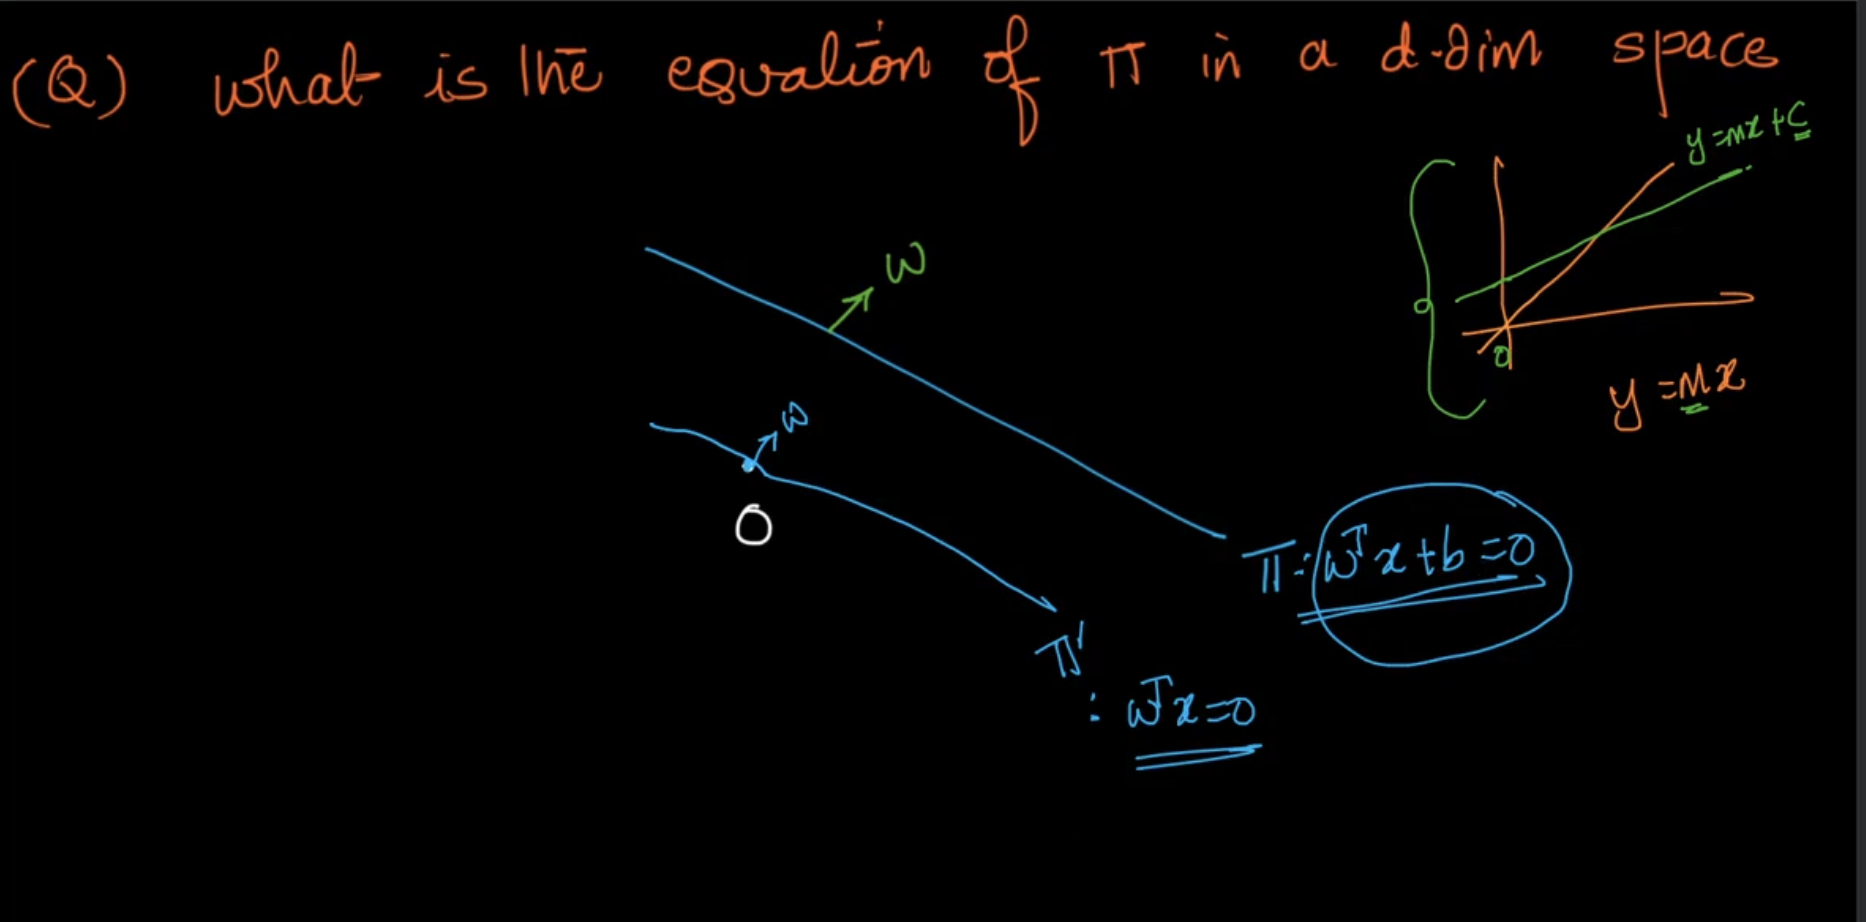 (Q) what is the equation of π in a d-dim space
y=mx+c
w
0
0
y=mx
w
O
π: wᵀx+b=0
π'
: wᵀx=0